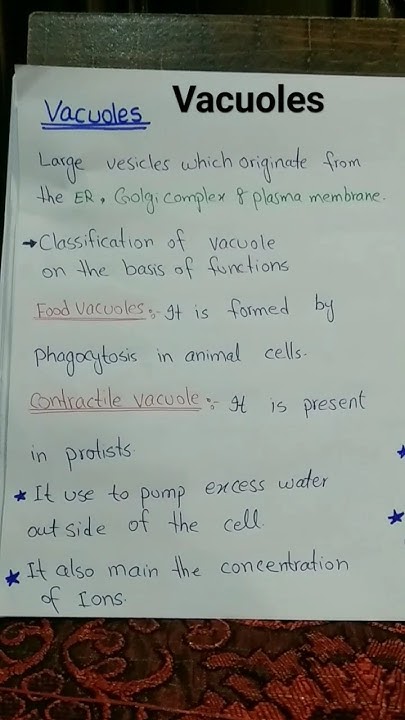 Vacuoles
Vacuoles
Large vesicles which originate from
the ER, Golgi complex & plasma membrane.
→ Classification of vacuole
on the basis of functions
Food vacuoles:- It is formed by
phagocytosis in animal cells.
Contractile vacuole:- It is present
in protists.
★ It use to pump excess water
out side of the cell.
★ It also main the concentration
of Ions.